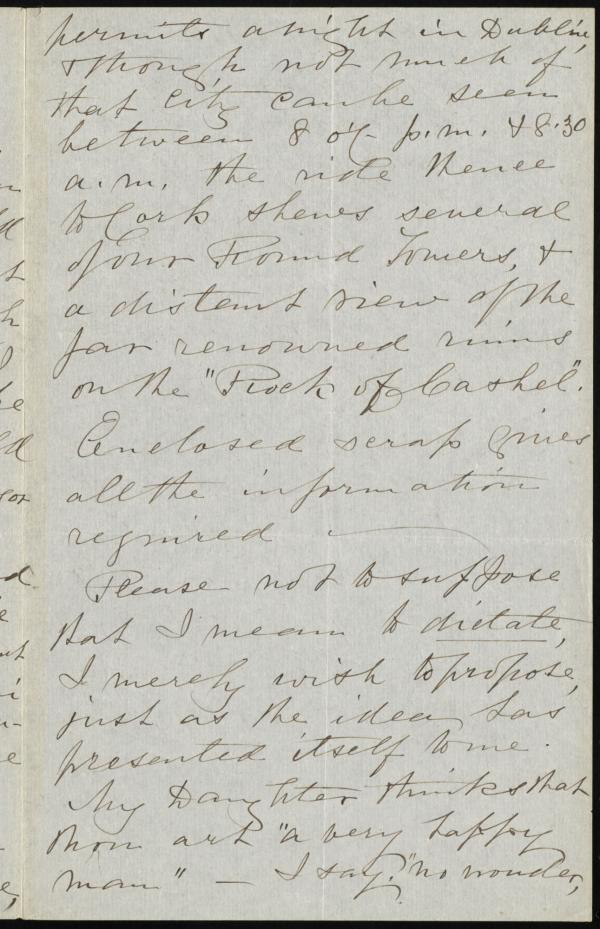 permits a night in Dublin,
& though not much of
that city can be seen
between 8 o'c p.m. & 8.30
a.m. the ride thence
to Cork shews several
of our Round Towers, &
a distant view of the
far renowned ruins
on the "Rock of Cashel".
Enclosed scrap gives
all the information
required —
Please not to suppose
that I mean to dictate,
I merely wish to propose,
just as the idea has
presented itself to me.
My Daughter thinks that
thou art "a very happy
man" — I say, "no wonder,